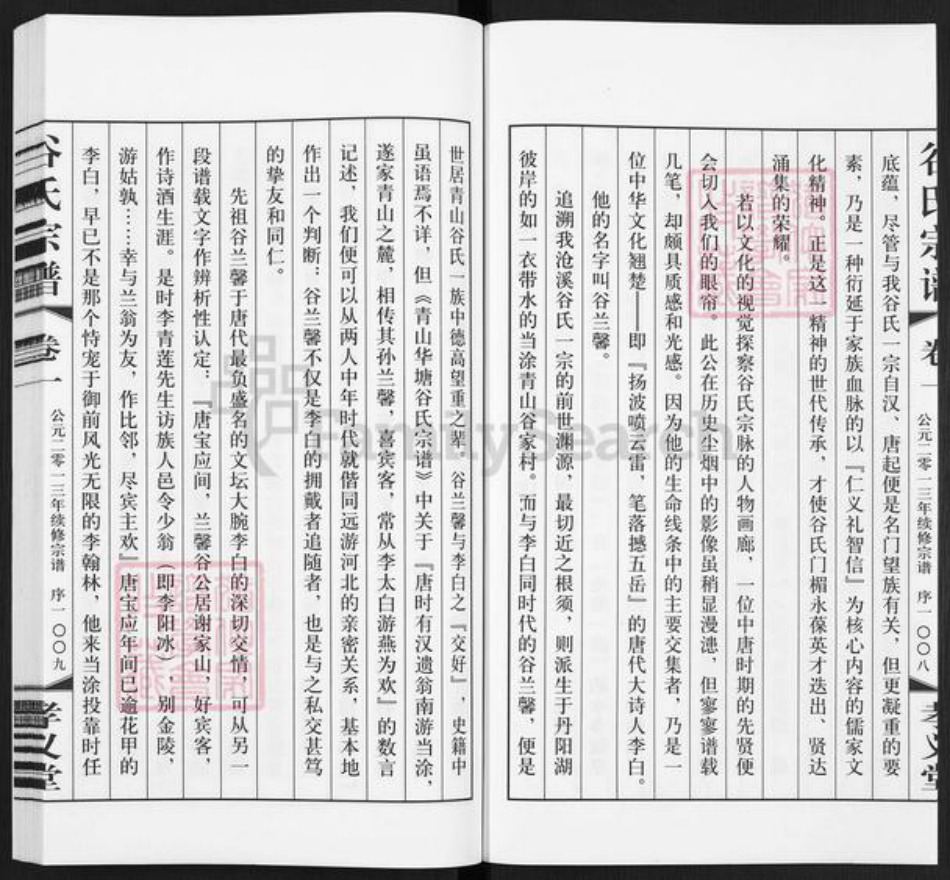 谷氏宗谱 卷一 公元二零一三年续修宗谱 序一 〇〇八 孝义堂
底蕴，尽管与我谷氏一宗自汉、唐起便是名门望族有关，但更凝重的要
素，乃是一种衍延于家族血脉的以『仁义礼智信』为核心内容的儒家文
化精神。正是这一精神的世代传承，才使谷氏门楣永葆英才迭出、贤达
涌集的荣耀。
若以文化的视觉探察谷氏宗脉的人物画廊，一位中唐时期的先贤便
会切入我们的眼帘。此公在历史尘烟中的影像虽稍显漫漶，但寥寥谱载
几笔，却颇具质感和光感。因为他的生命线条中的主要交集者，乃是一
位中华文化翘楚——即『扬波喷云雷，笔落撼五岳』的唐代大诗人李白。
他的名字叫谷兰馨。
追溯我沧溪谷氏一宗的前世渊源，最切近之根须，则派生于丹阳湖
彼岸的如一衣带水的当涂青山谷家村。而与李白同时代的谷兰馨，便是
世居青山谷氏一族中德高望重之辈。谷兰馨与李白之『交好』，史籍中
虽语焉不详，但《青山华塘谷氏宗谱》中关于『唐时有汉遗翁南游当涂，
遂家青山之麓，相传其孙兰馨，喜宾客，常从李太白游燕为欢』的数言
记述，我们便可以从两人中年时代就偕同远游河北的亲密关系，基本地
作出一个判断：谷兰馨不仅是李白的拥戴者追随者，也是与之私交甚笃
的挚友和同仁。
先祖谷兰馨于唐代最负盛名的文坛大腕李白的深切交情，可从另一
段谱载文字作辨析性认定：『唐宝应间，兰馨谷公居谢家山，好宾客，
作诗酒生涯。是时李青莲先生访族人邑令少翁（即李阳冰），别金陵，
游姑孰……幸与兰翁为友，作比邻，尽宾主欢』唐宝应年间已逾花甲的
李白，早已不是那个恃宠于御前风光无限的李翰林，他来当涂投靠时任
谷氏宗谱 卷一 公元二零一三年续修宗谱 序一 〇〇九 孝义堂
FamilySearch